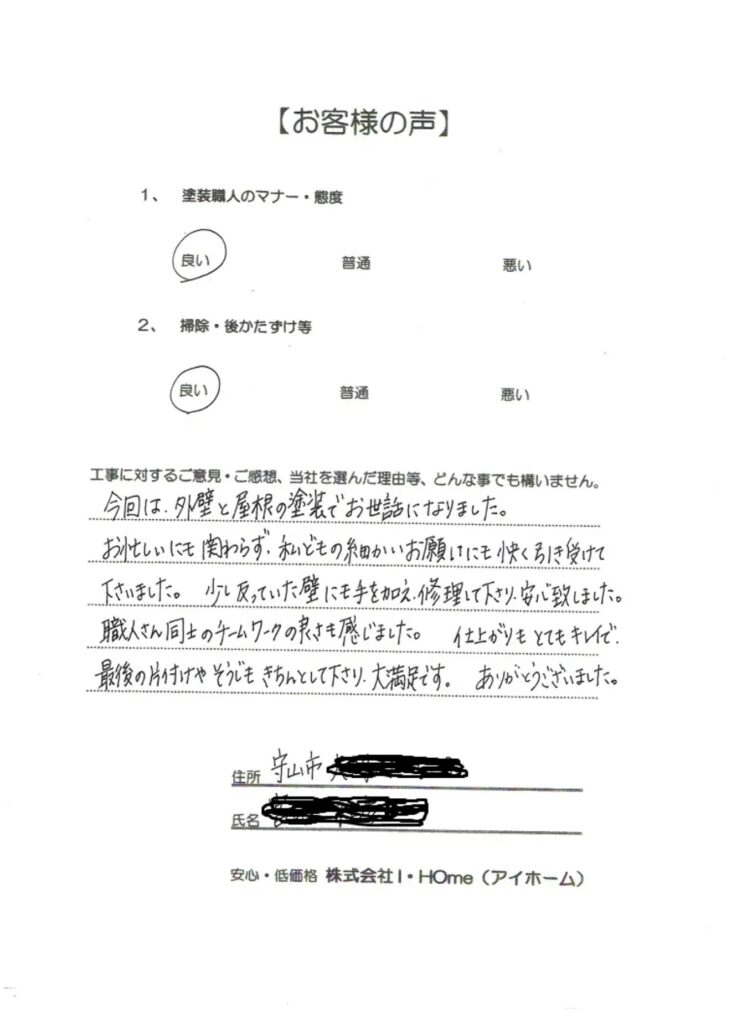 【お客様の声】
1、 塗装職人のマナー・態度
良い 普通 悪い
2、 掃除・後かたずけ等
良い 普通 悪い
工事に対するご意見・ご感想、当社を選んだ理由等、どんな事でも構いません。
今回は、外壁と屋根の塗装でお世話になりました。
お忙しいにも関わらず、私どもの細かいお願いにも快く引き受けて
下さいました。 少し反っていた壁にも手を加え、修理して下さり、安心致しました。
職人さん同士のチームワークの良さも感じました。 仕上がりもとてもキレイで、
最後の片付けやそうじもきちんとして下さり、大満足です。 ありがとうございました。
住所 守山市
氏名
安心・低価格 株式会社I・HOme(アイホーム)